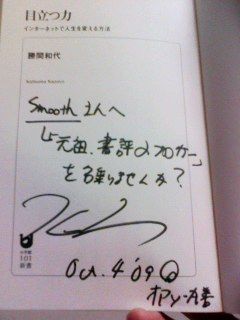 目立つ力
インターネットで人生を変える方法
勝間和代
Katsuma Kazuyo
Smooth さんへ
「元祖、書評ブロガー」
を名乗りませんか？
小学館
101
新書
Oct. 4 '09